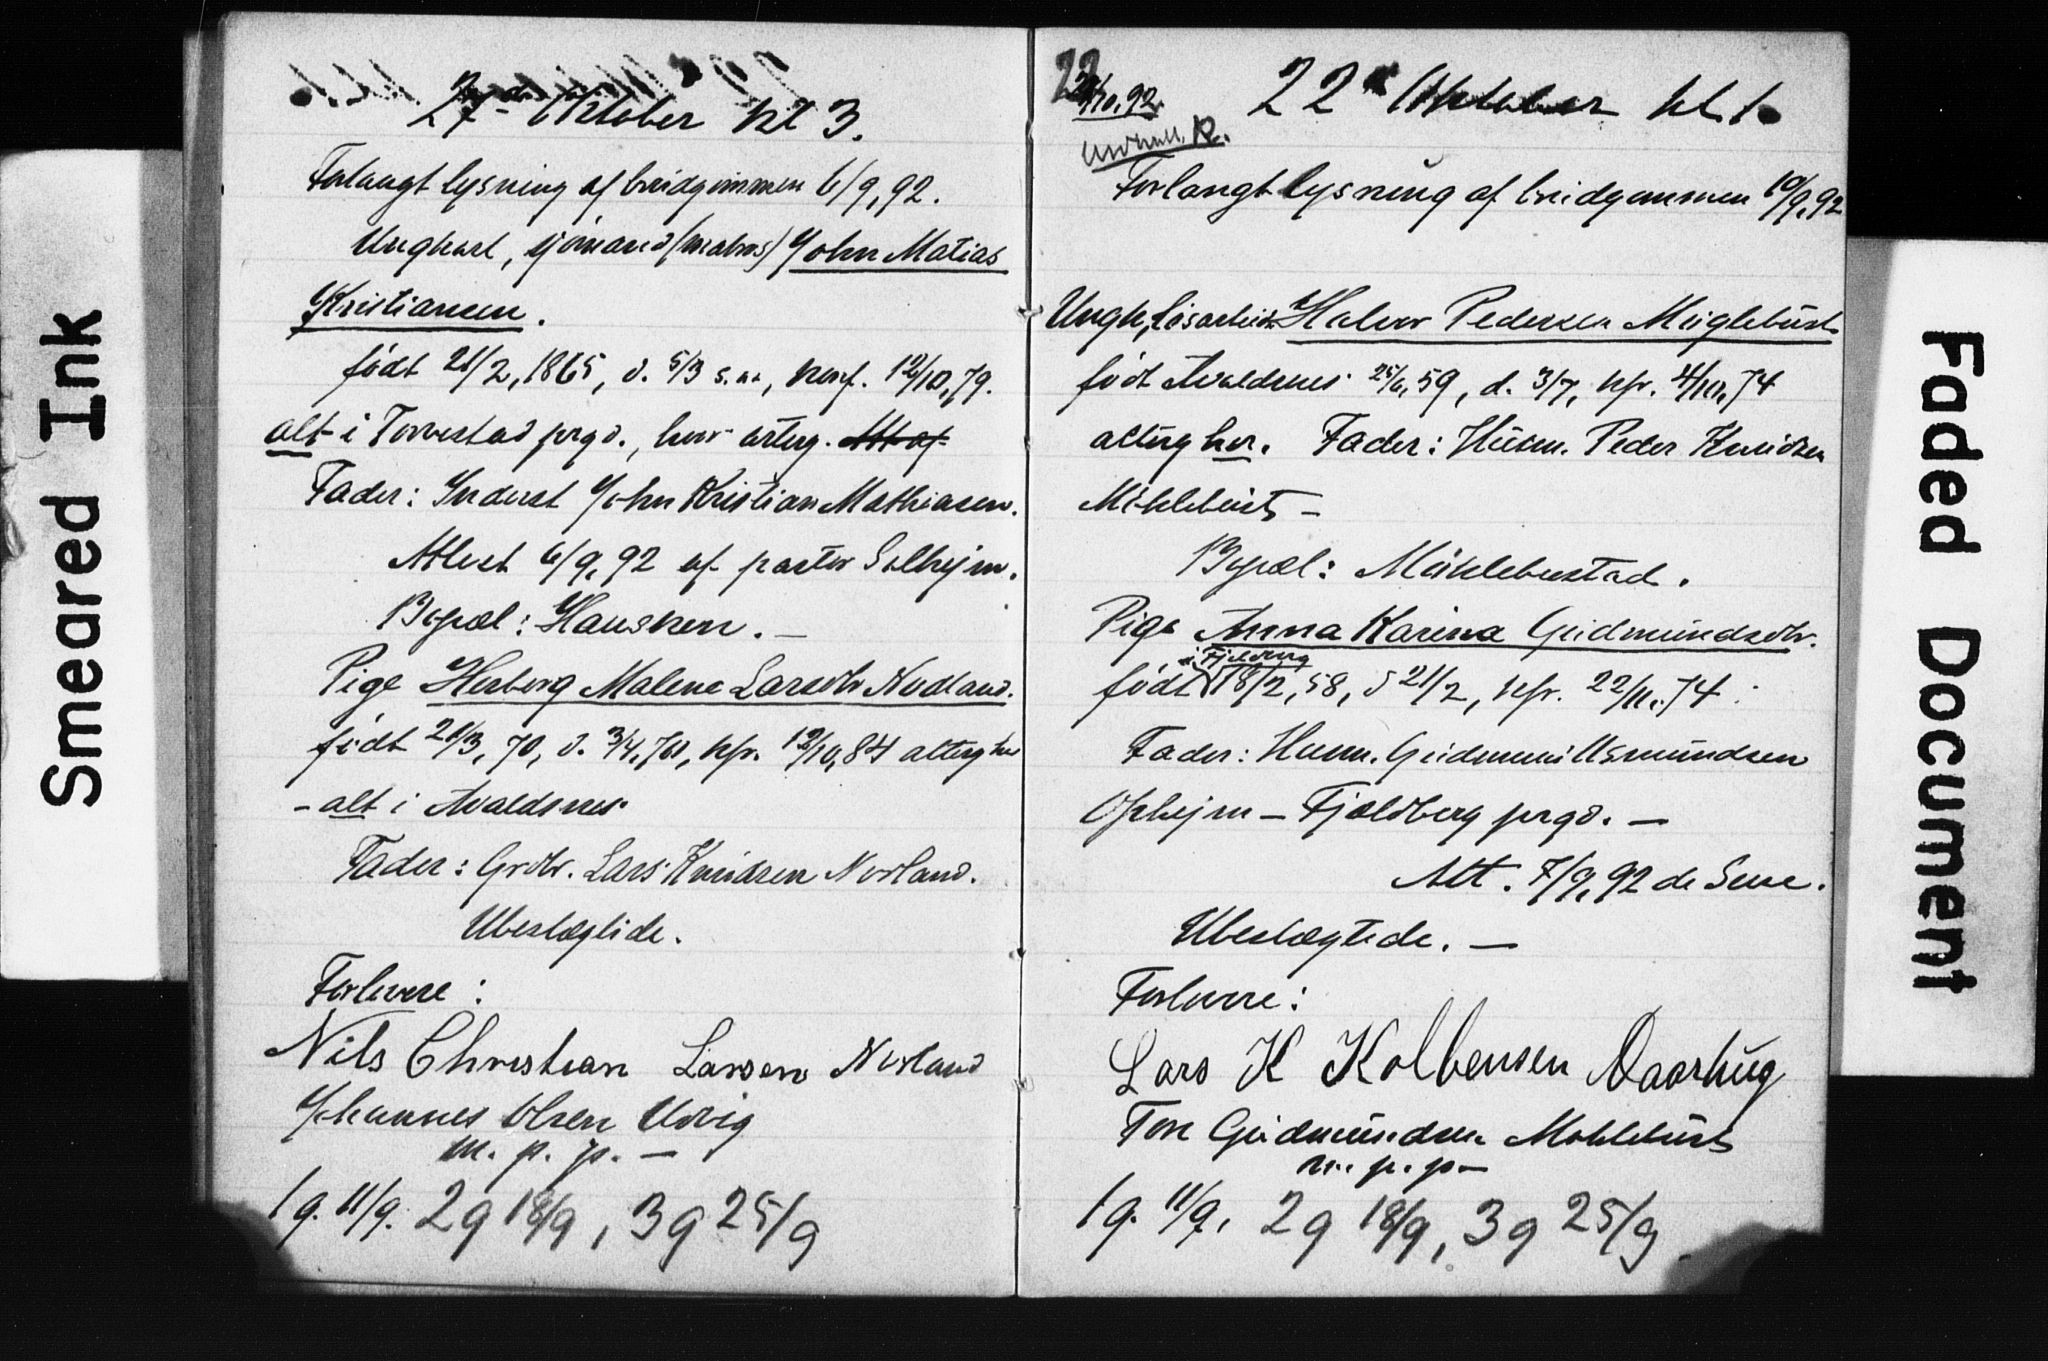 Smeared Ink
27de Oktober kl 3.
Forlangt lysning af bridgommen 6/9, 92.
Ungkarl, sjømand (matros) John Matias
Kristiansen.
født 21/2, 1865, d. 5/3 s. a., konf. 12/10, 79.
alt i Torvestad prgd., hvor
Fader: Inderst John Kristian Mathiasen.
Attest 6/9, 92 af pastor Solhejm.
Bopæl: Hausken. —
Pige Herborg Malene Larsdtr Nodland.
født 21/3, 70, d. 3/4, 70, kfr. 12/10, 84
– alt i Avaldsnes
Fader: Grdbr. Lars Knudsen Norland.
Ubeslægtide.
Forlovere:
Nils Christian Larsen Norland
Johannes Olsen Udvig
m. p. p. —
1 g. 11/9. 2 g 18/9, 3 g 25/9
22/10. 92
22de Oktober kl. 1.
Forlangt lysning af bridgommen 10/9, 92
Ungk, løsarbeid. Halvor Pedersen Myglebust
født Avaldsnes 25/6, 59, d. 3/7, kfr. 4/10, 74
altsaa her. Fader: Husm. Peder Knudsen
Miklebust –
Bopæl: Miklebustad.
Pige Anna Karina Gudmundsdtr.
i Fjelberg
født 18/2, 58, d 21/2, kfr. 22/11, 74
Fader: Husm. Gudmund Asmundsen
Ophejm – Fjeldberg prgd. —
Att. 7/9, 92 de Seue.
Ubeslægtede. —
Forlovere:
Lars K Kolbensen Vaarhug
Tore Gudmundsen Moklebust
m. p. p –
1 g. 11/9, 2 g 18/9, 3 g 25/9
Faded Document